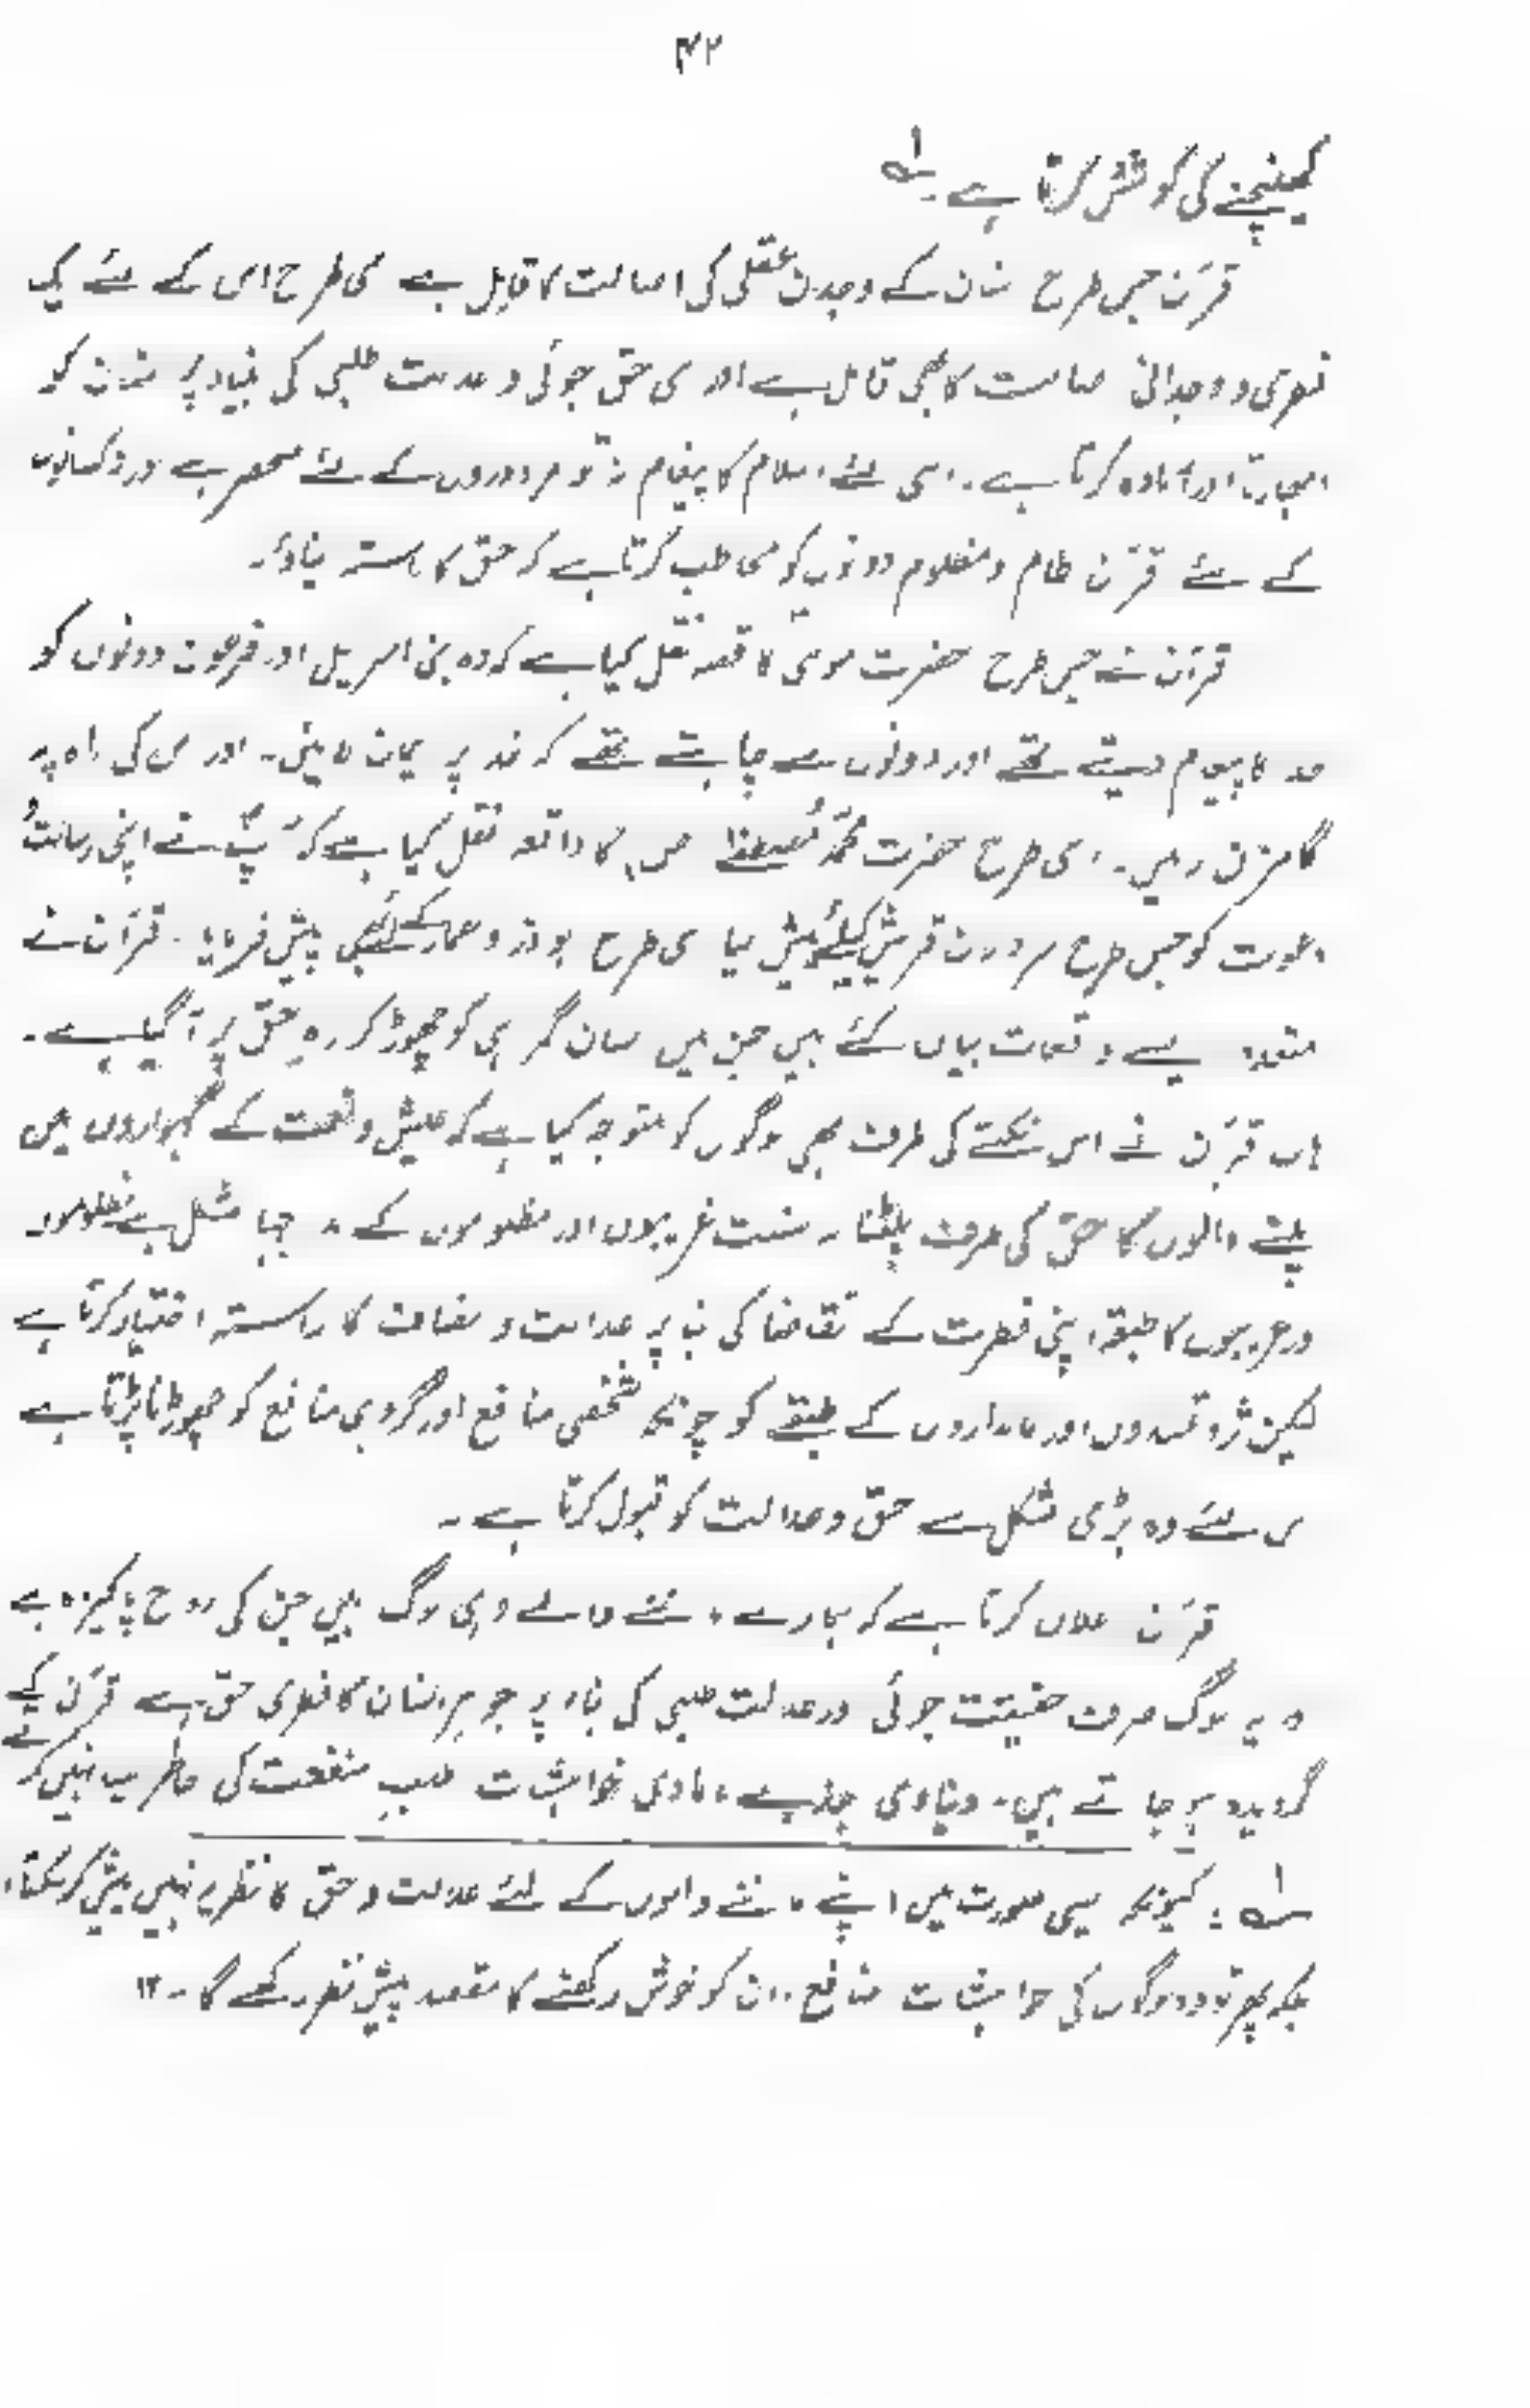 ۴۲
کھینچنے کی کوشش کرتا ہے ۔ ۱
قرآن جس طرح انسان کے وجدان عقلی کی اصالت کا قابل ہے اسی طرح اس کے لئے ایک
فطری و وجدانی اصالت کا بھی قائل ہے اور اسی حق جوئی و عدالت طلبی کی بنیاد پر انسان کو
ابھارتا اور آمادہ کرتا ہے ۔ اسی لئے اسلام کا پیغام نہ تو مزدوروں کے لئے منحصر ہے اور نہ کسانوں
کے لئے قرآن ظالم و مظلوم دونوں کو مخاطب کرتا ہے کہ حق کا راستہ اپناؤ ۔
قرآن نے جس طرح حضرت موسیٰ کا قصہ نقل کیا ہے کہ وہ بنی اسرائیل اور فرعون دونوں کو
خدا کا پیغام دیتے تھے اور دونوں سے چاہتے تھے کہ خدا پر ایمان لائیں ۔ اور اس کی راہ پر
گامزن رہیں ۔ اسی طرح حضرت محمد مصطفےٰ (ص) کا واقعہ نقل کیا ہے کہ آپؐ نے اپنی رسالت و
دعوت کو جس طرح سرداران قریش کیلئے پیش کیا اسی طرح ابوذر و عمار کے لئے بھی پیش فرمایا ۔ قرآن نے
متعدد ایسے واقعات بیان کئے ہیں جن میں انسان گمراہی کو چھوڑ کر راہِ حق پر آ گیا ہے ۔
ہاں قرآن نے اس نکتے کی طرف بھی لوگوں کو متوجہ کیا ہے کہ عیش و نعمت کے گہواروں میں
پلنے والوں کا حق کی طرف پلٹنا بہ نسبت غریبوں اور مظلوموں کے مشکل ہے مظلوموں
اور غریبوں کا طبقہ اپنی فطرت کے تقاضا کی بنا پر عدالت و انصاف کا راستہ اختیار کرتا ہے
لیکن ثروتمندوں اور مالداروں کے طبقے کو چونکہ شخصی منافع اور گروہی منافع کو چھوڑنا پڑتا ہے
اس لئے وہ بڑی مشکل سے حق و عدالت کو قبول کرتا ہے ۔
قرآن اعلان کرتا ہے کہ ہمارے ماننے والے وہی لوگ ہیں جن کی روح پاکیزہ ہے
اور یہ لوگ صرف حقیقت جوئی اور عدالت طلبی کی بناء پر جو ہر انسان کا فطری حق ہے قرآن کے
گرویدہ ہو جاتے ہیں ۔ دنیاوی جذبے ، مادی خواہشات طلب منفعت کی خاطر ایسا نہیں کرتے
۱ : کیونکہ ایسی صورت میں اپنے ماننے والوں کے لئے عدالت و حق کا نظریہ نہیں پیش کر سکتا ،
بلکہ پھر تو وہ لوگوں کی خواہشات منافع ، ان کو خوش رکھنے کا مقصد پیش نظر رکھے گا ۔ ۱۲